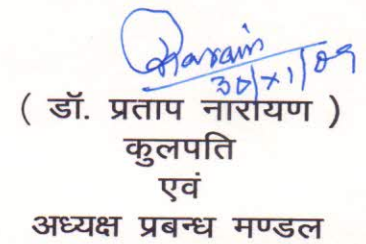 Narain
30/XI/09
( डॉ. प्रताप नारायण )
कुलपति
एवं
अध्यक्ष प्रबन्ध मण्डल